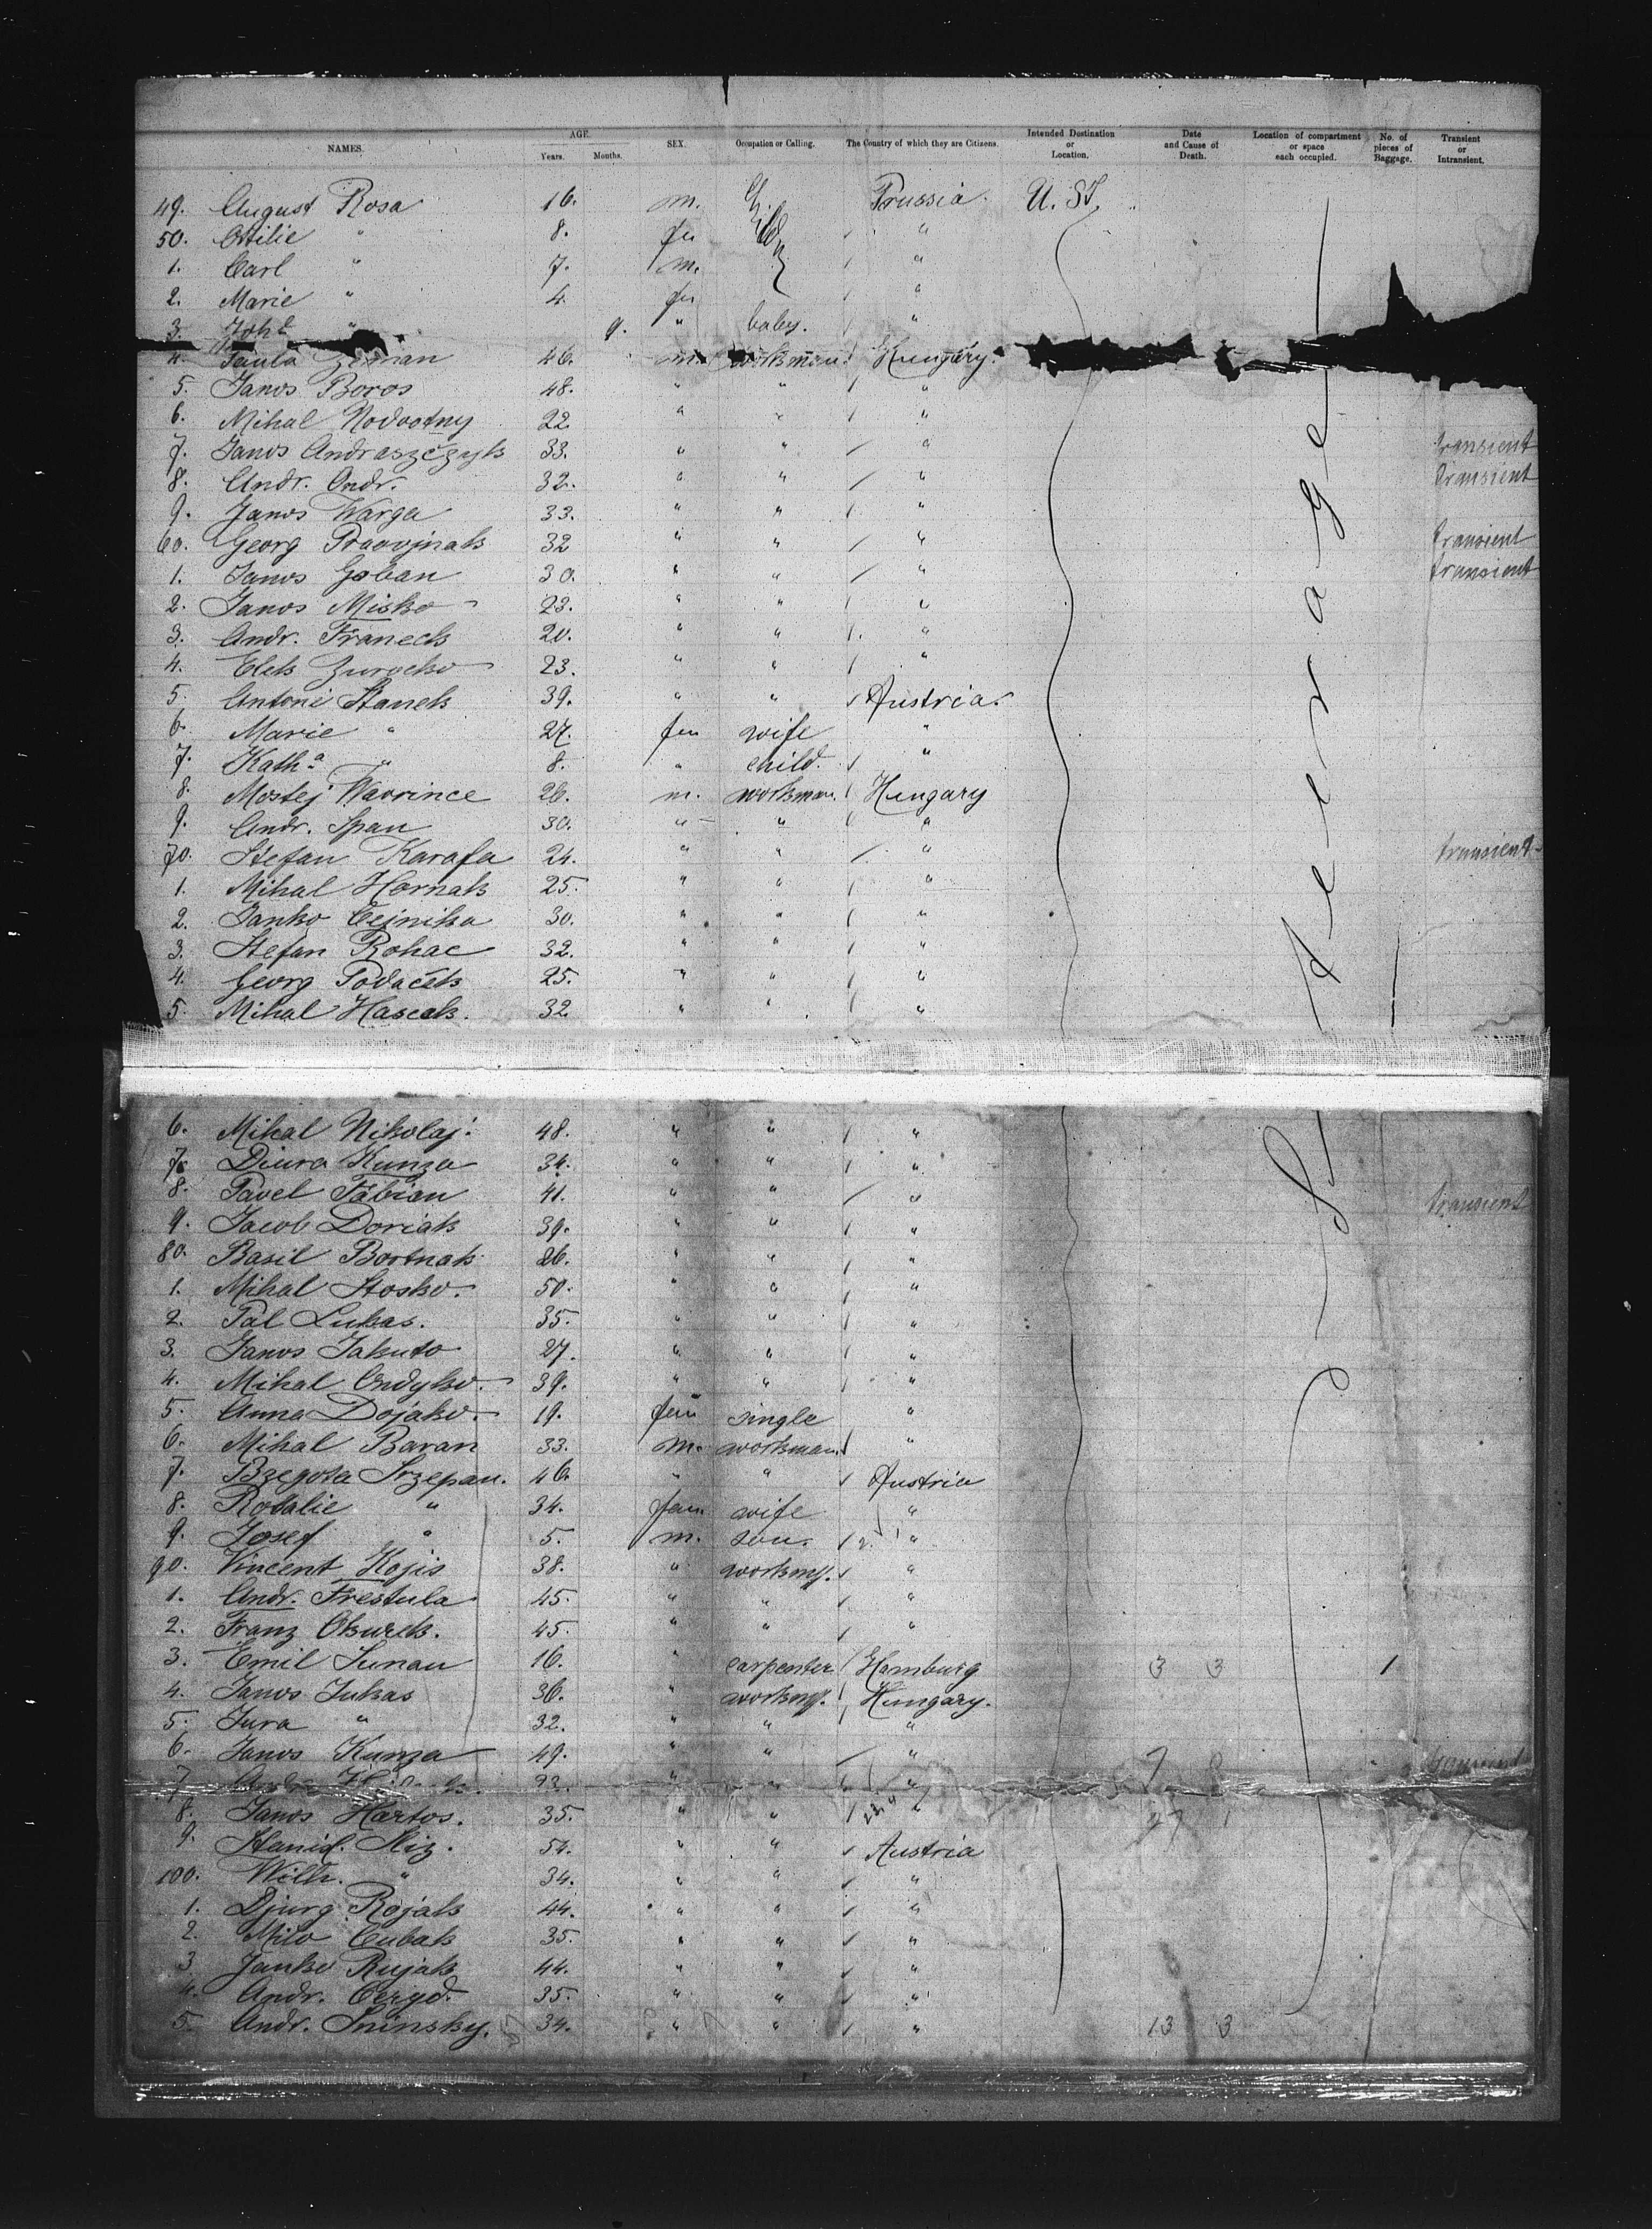 NAMES. AGE. Years. Months. SEX. Occupation or Calling. The Country of which they are Citizens. Intended Destination or Location. Date and Cause of Death. Location of compartment or space each occupied. No. of pieces of Baggage. Transient or Intransient.
49. August Rosa 16. m. Prussia. U. St.
50. Ottilie " 8. fm "
1. Carl " 7. m. "
2. Marie " 4. fm "
3. Joh " 9. " baby. "
4. Paula 46. m. workman. Hungary.
5. Janos Boros 48. " " "
6. Mihal Nodvotny 22. " " "
7. Janos Andraszczyk 33. " " " transient
8. Andr. Ondr. 32. " " " transient
9. Janos Warga 33. " " "
60. Georg Praovjnak 32 " " " transient
1. Janos Goban 30. " " " transient
2. Janos Misko 23. " " "
3. Andr. Franeck 20. " " "
4. Elek Zurocko 23. " " "
5. Antoni Stanek 39. " " Austria.
6. Marie " 27. fm wife "
7. Kath.a " 8. " child. "
8. Mostej Wavrince 26. m. workman. Hungary
9. Andr. Span 30. " " "
70. Stefan Karafa 24. " " " transient
1. Mihal Hornak 25. " " "
2. Janko Cejnika 30. " " "
3. Stefan Rohac 32. " " "
4. Georg Podacek 25. " " "
5. Mihal Hascak. 32 " " "
Steerage
6. Mihal Nikolaj. 48. " " "
7. Diura Kunza 34. " " "
8. Pavel Fabian 41. " " " transient
9. Jacob Doriak 39. " " "
80. Basil Bortnak 26. " " "
1. Mihal Stosko. 50. " " "
2. Pal Lukas. 35. " " "
3. Janos Jakuto 27. " " "
4. Mihal Ondyko. 39. " " "
5. Anna Dojako. 19. fem single "
6. Mihal Baran 33. m. workman. "
7. Bzegota Szepan. 46. " " Austria
8. Rosalie " 34. fem wife "
9. Josef " 5. m. son. "
90. Vincent Kojis 38. " workmn. "
1. Andr. Frestula 45. " " "
2. Franz Okurek. 45. " " "
3. Emil Lunau 16. " carpenter Hamburg 3 3 1
4. Janos Jukas 36. " workmn. Hungary.
5. Jura " 32. " " "
6. Janos Kunza 49. " " " transient
7. 23. " " "
8. Janos Hartos. 35. " " "
9. Hanid. Kiz. 54. " " Austria
100. Wilh. " 34. " " "
1. Djurg Rojak 44. " " "
2. Milo Cubak 35. " " "
3 Janko Rujak 44. " " "
4. Andr. Ceryd. 35. " " "
5. Andr. Sninsky. 34. " " " 13 3